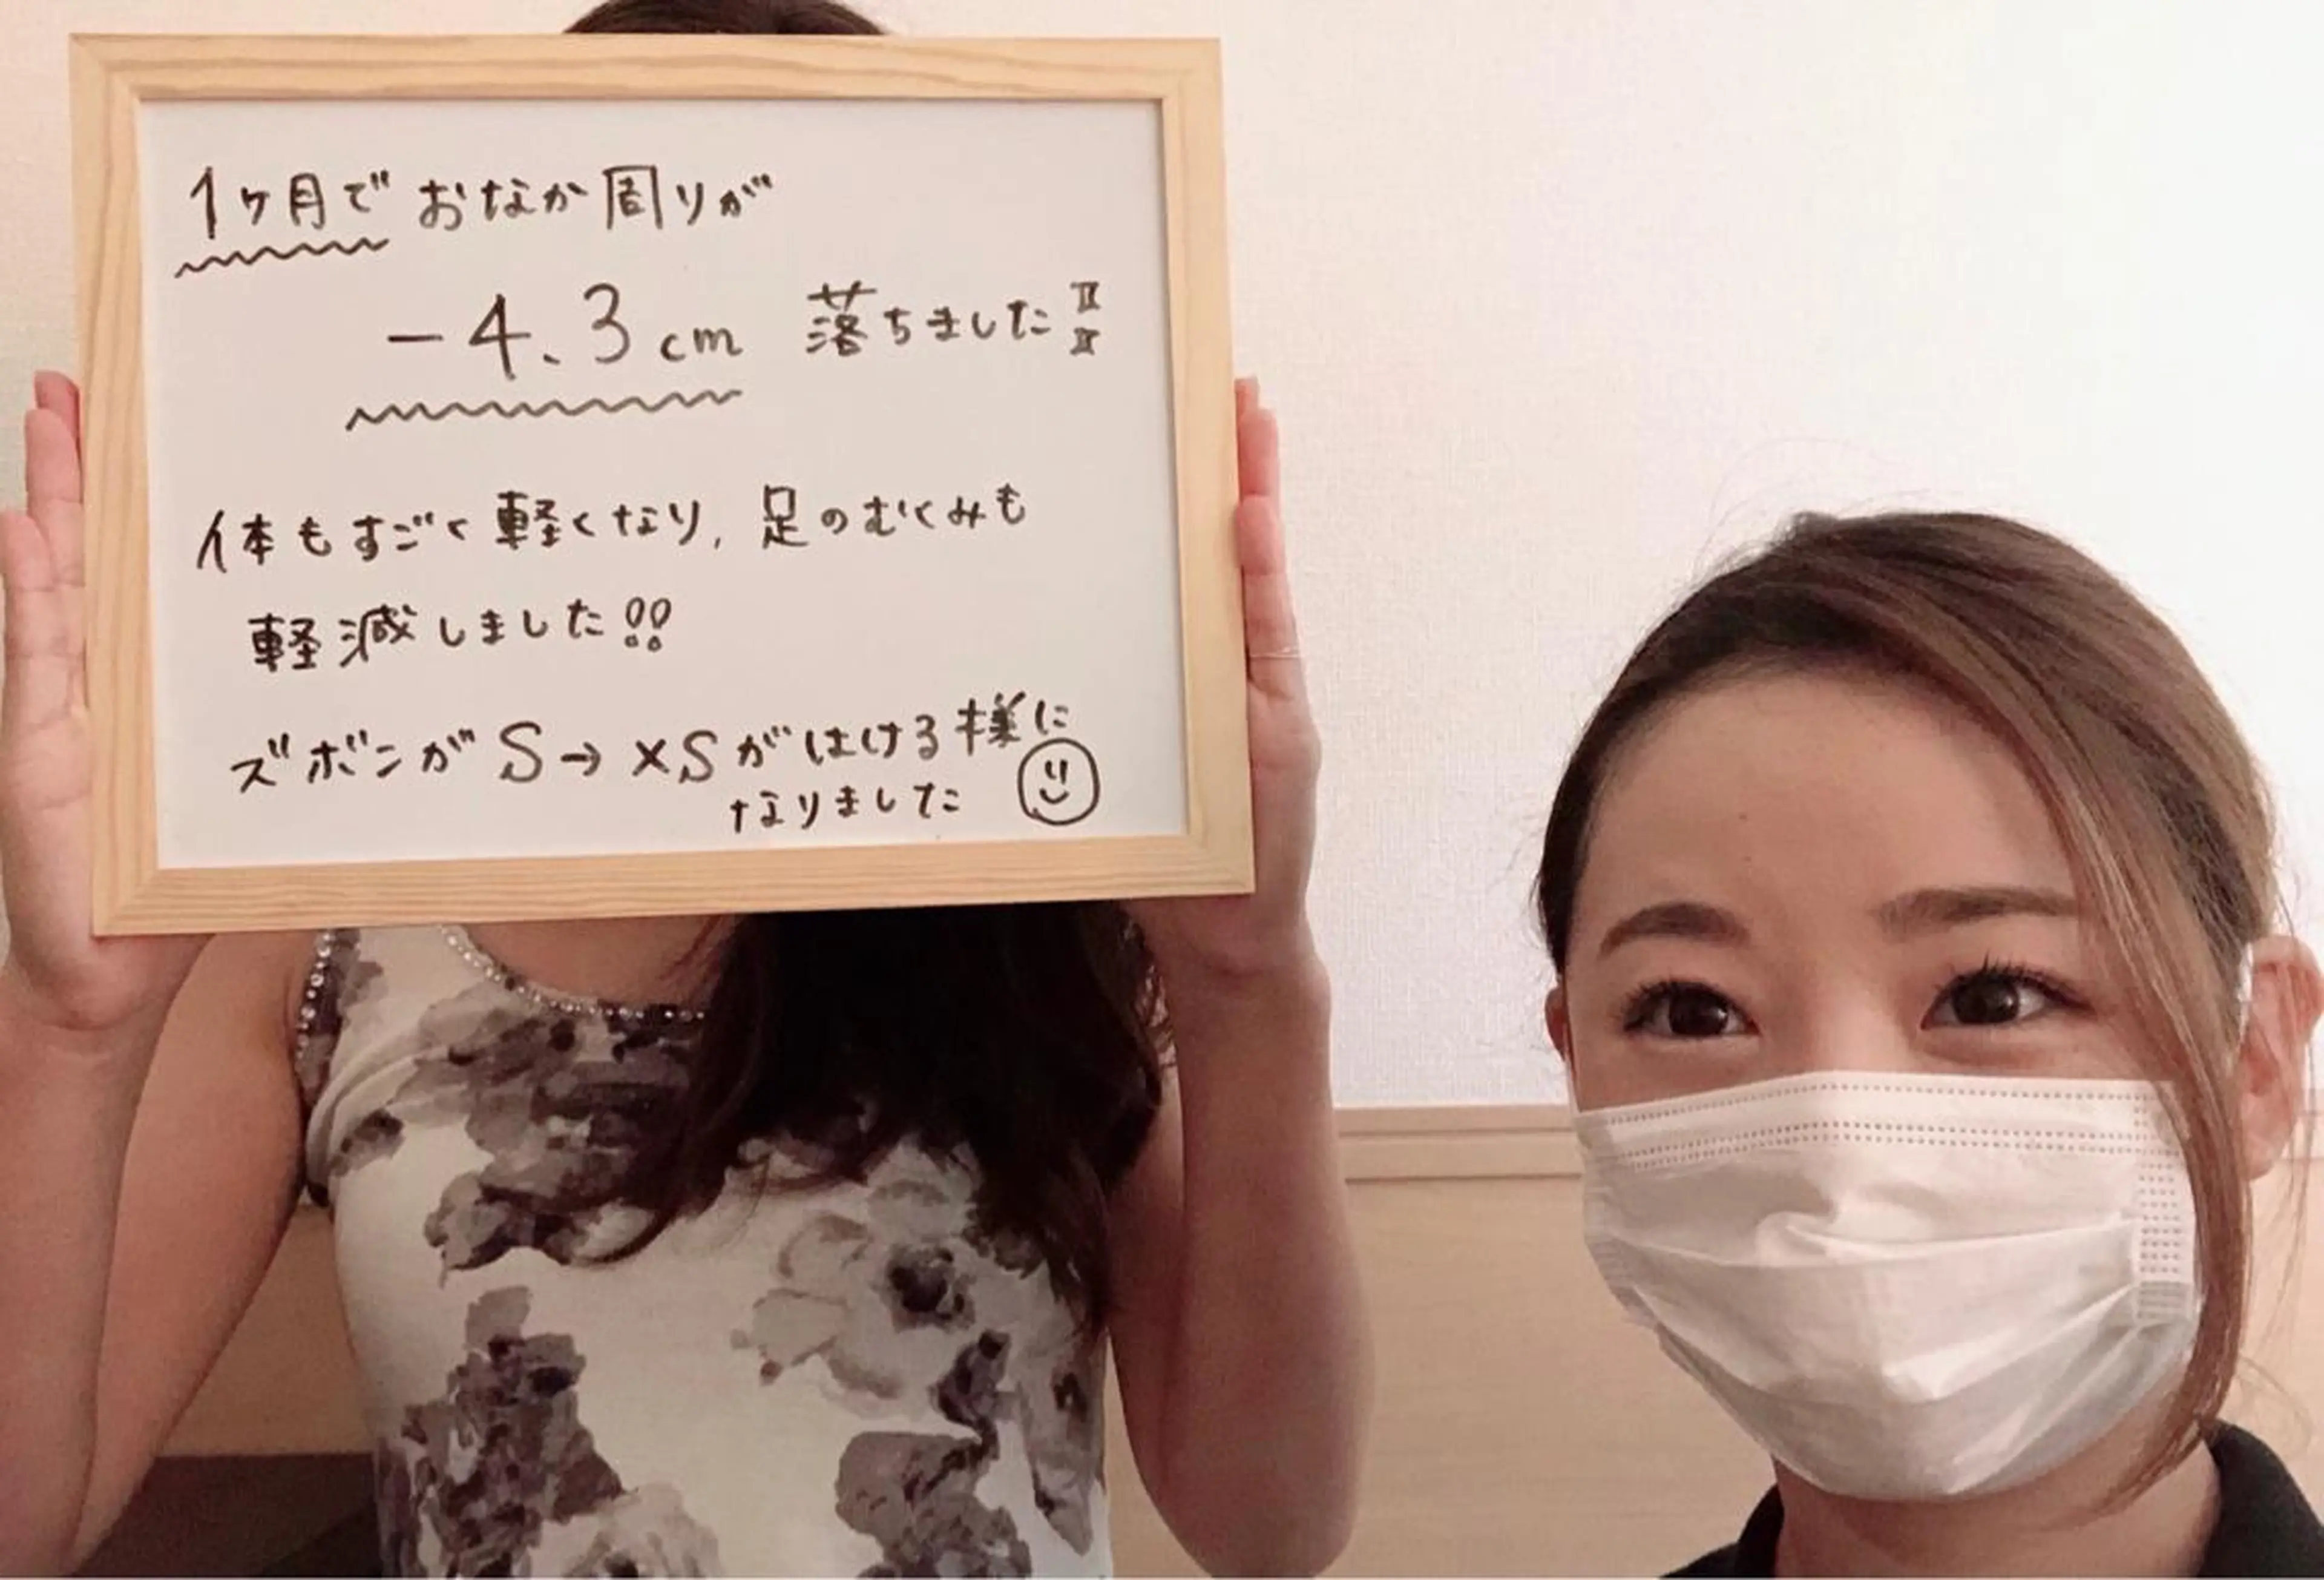 1ヶ月でおなか周りが
-4.3cm 落ちました!!
体もすごく軽くなり, 足のむくみも
軽減しました!!
ズボンがS→XSがはける様に
なりました